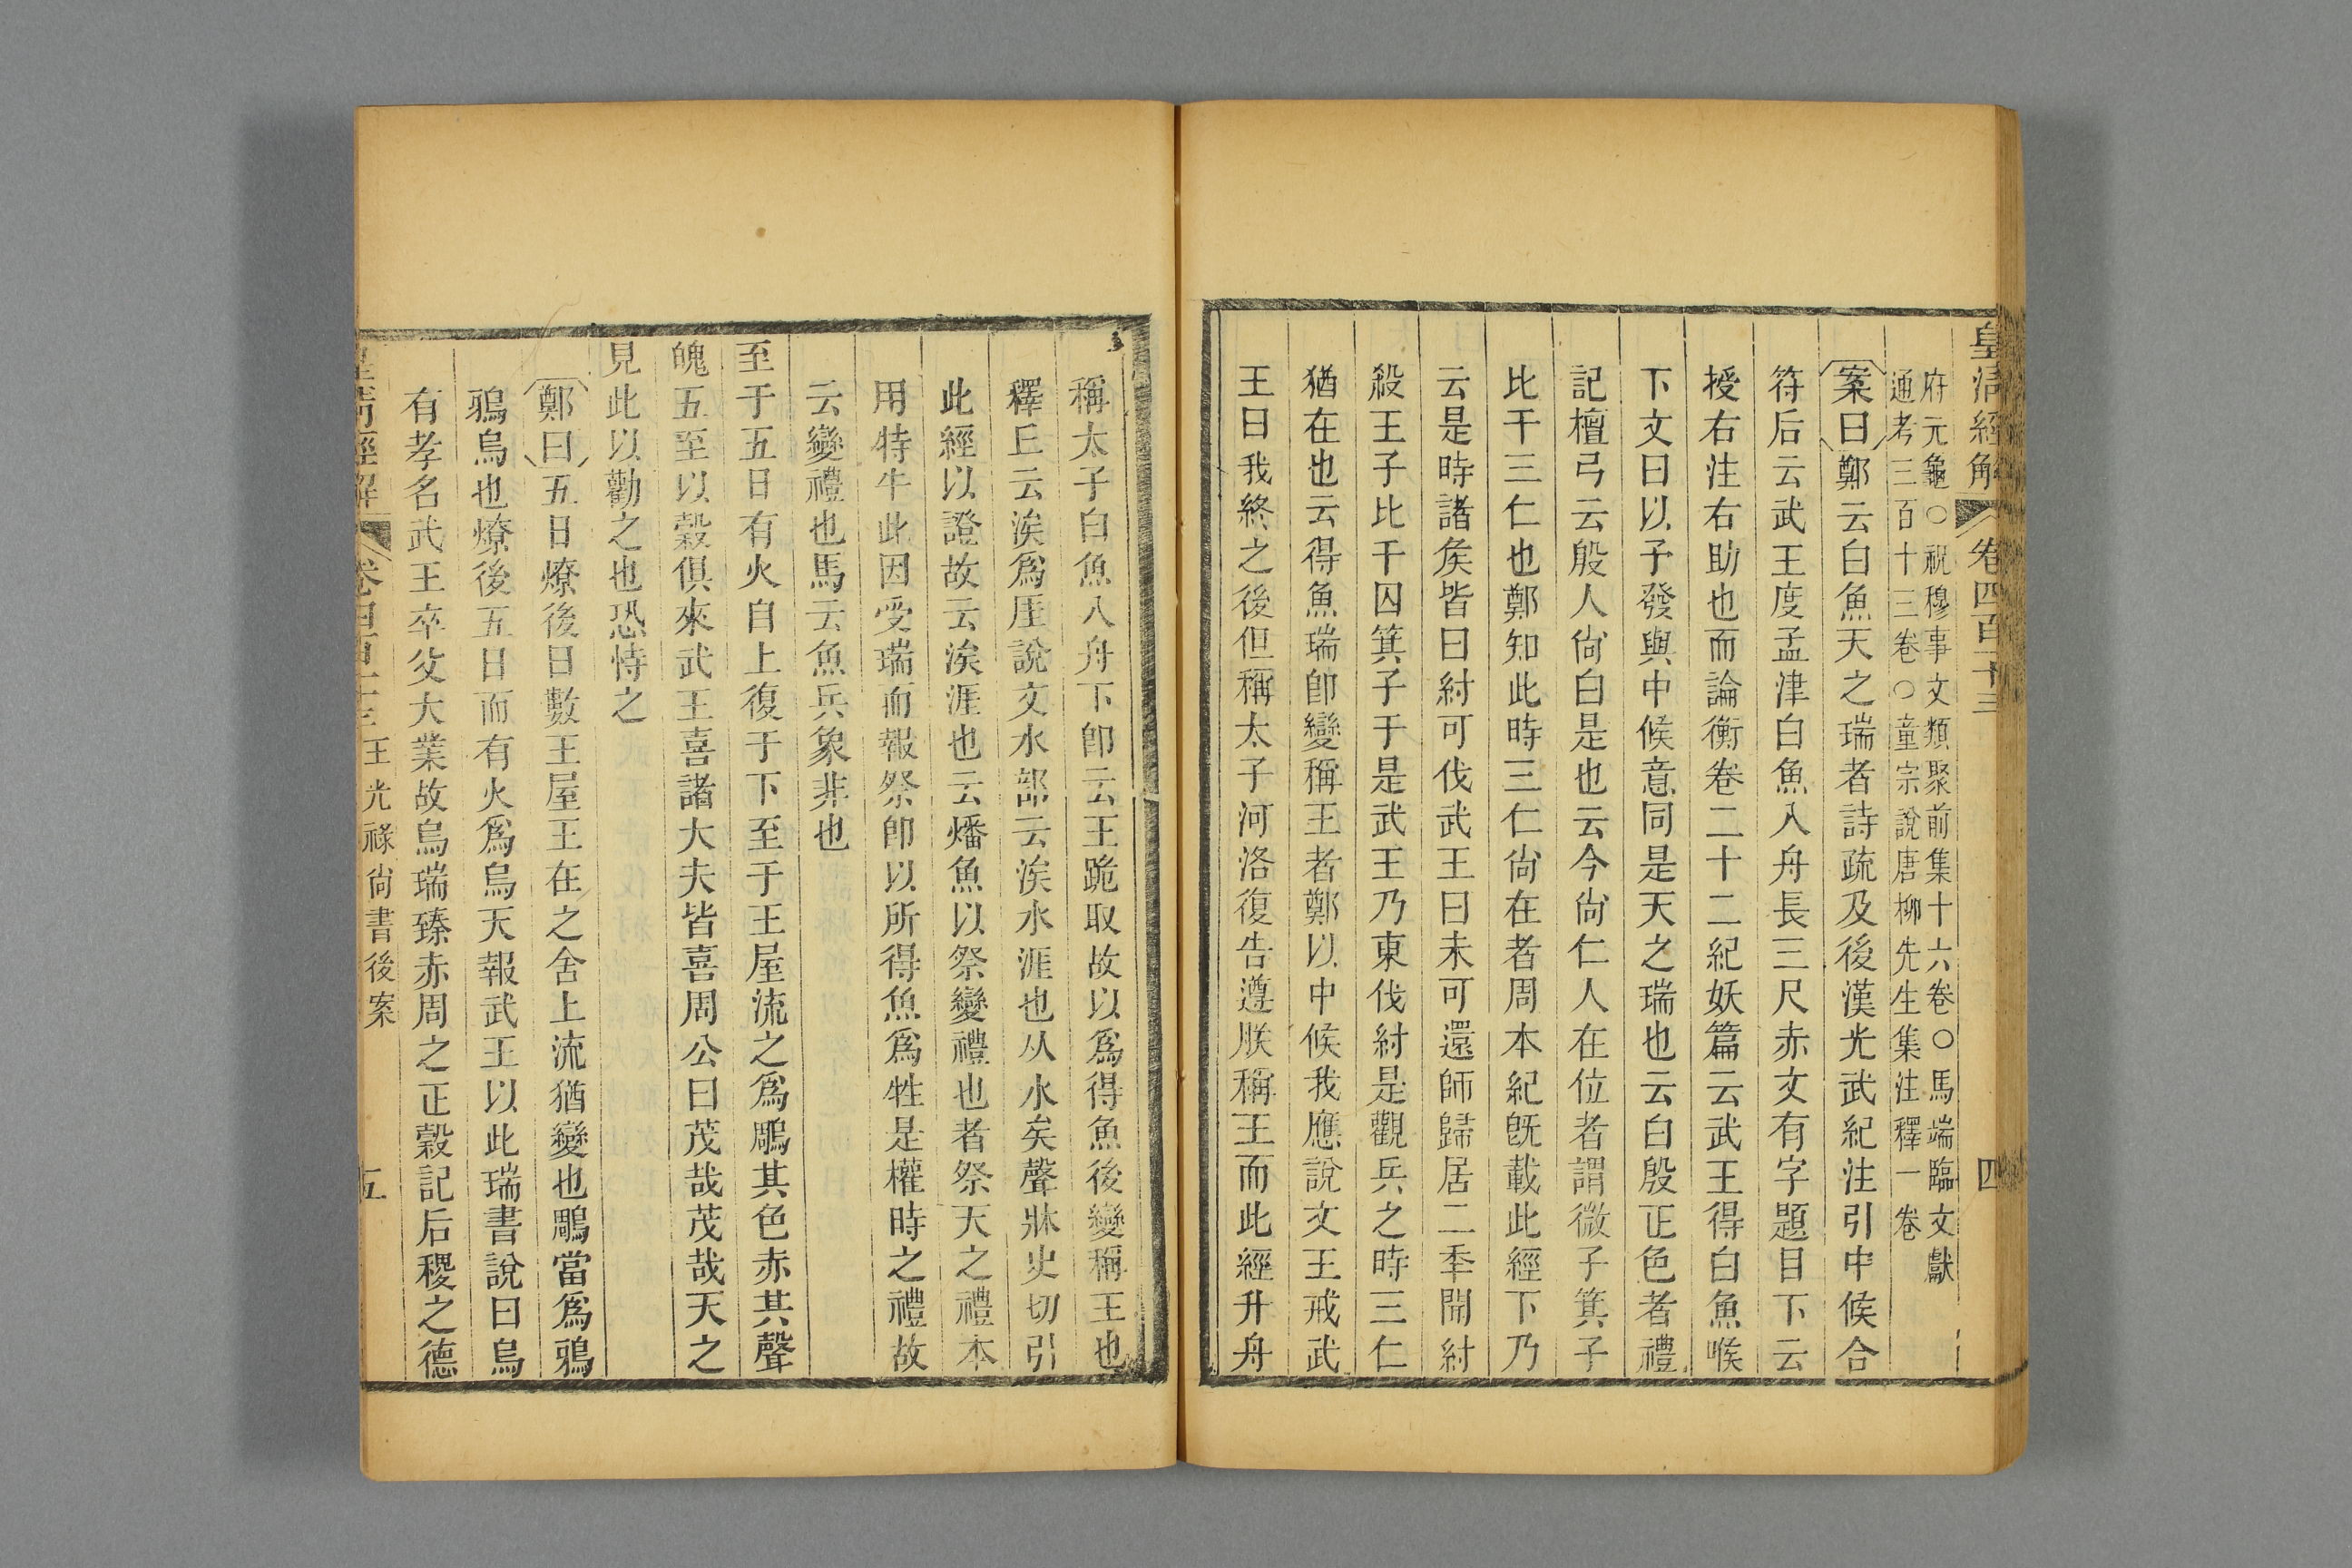 皇清經解 卷四百十三 四
府元龜○祝穆事文類聚前集十六卷○馬端臨文獻
通考三百十三卷○童宗說唐柳先生集注釋一卷
案曰鄭云白魚天之瑞者詩疏及後漢光武紀注引中候合
符后云武王度孟津白魚入舟長三尺赤文有字題目下云
授右注右助也而論衡卷二十二紀妖篇云武王得白魚喉
下文曰以予發與中候意同是天之瑞也云白殷正色者禮
記檀弓云殷人尙白是也云今尙仁人在位者謂微子箕子
比干三仁也鄭知此時三仁尙在者周本紀旣載此經下乃
云是時諸矦皆曰紂可伐武王曰未可還師歸居二秊聞紂
殺王子比干囚箕子于是武王乃東伐紂是觀兵之時三仁
猶在也云得魚瑞卽變稱王者鄭以中候我應說文王戒武
王曰我終之後但稱太子河洛復告遵朕稱王而此經升舟
稱太子白魚入舟下卽云王跪取故以爲得魚後變稱王也
釋丘云涘爲厓說文水部云涘水涯也从水矣聲牀史切引
此經以證故云涘涯也云燔魚以祭變禮也者祭天之禮本
用特牛此因受瑞而報祭卽以所得魚爲牲是權時之禮故
云變禮也馬云魚兵象非也
至于五日有火自上復于下至于王屋流之爲鵰其色赤其聲
魄五至以穀俱來武王喜諸大夫皆喜周公曰茂哉茂哉天之
見此以勸之也恐恃之
鄭曰五日燎後日數王屋王在之舍上流猶變也鵰當爲鴉
鴉烏也燎後五日而有火爲烏天報武王以此瑞書說曰烏
有孝名武王卒父大業故烏瑞臻赤周之正穀記后稷之德
皇淸經解 卷四百十三 王光祿尙書後案 五